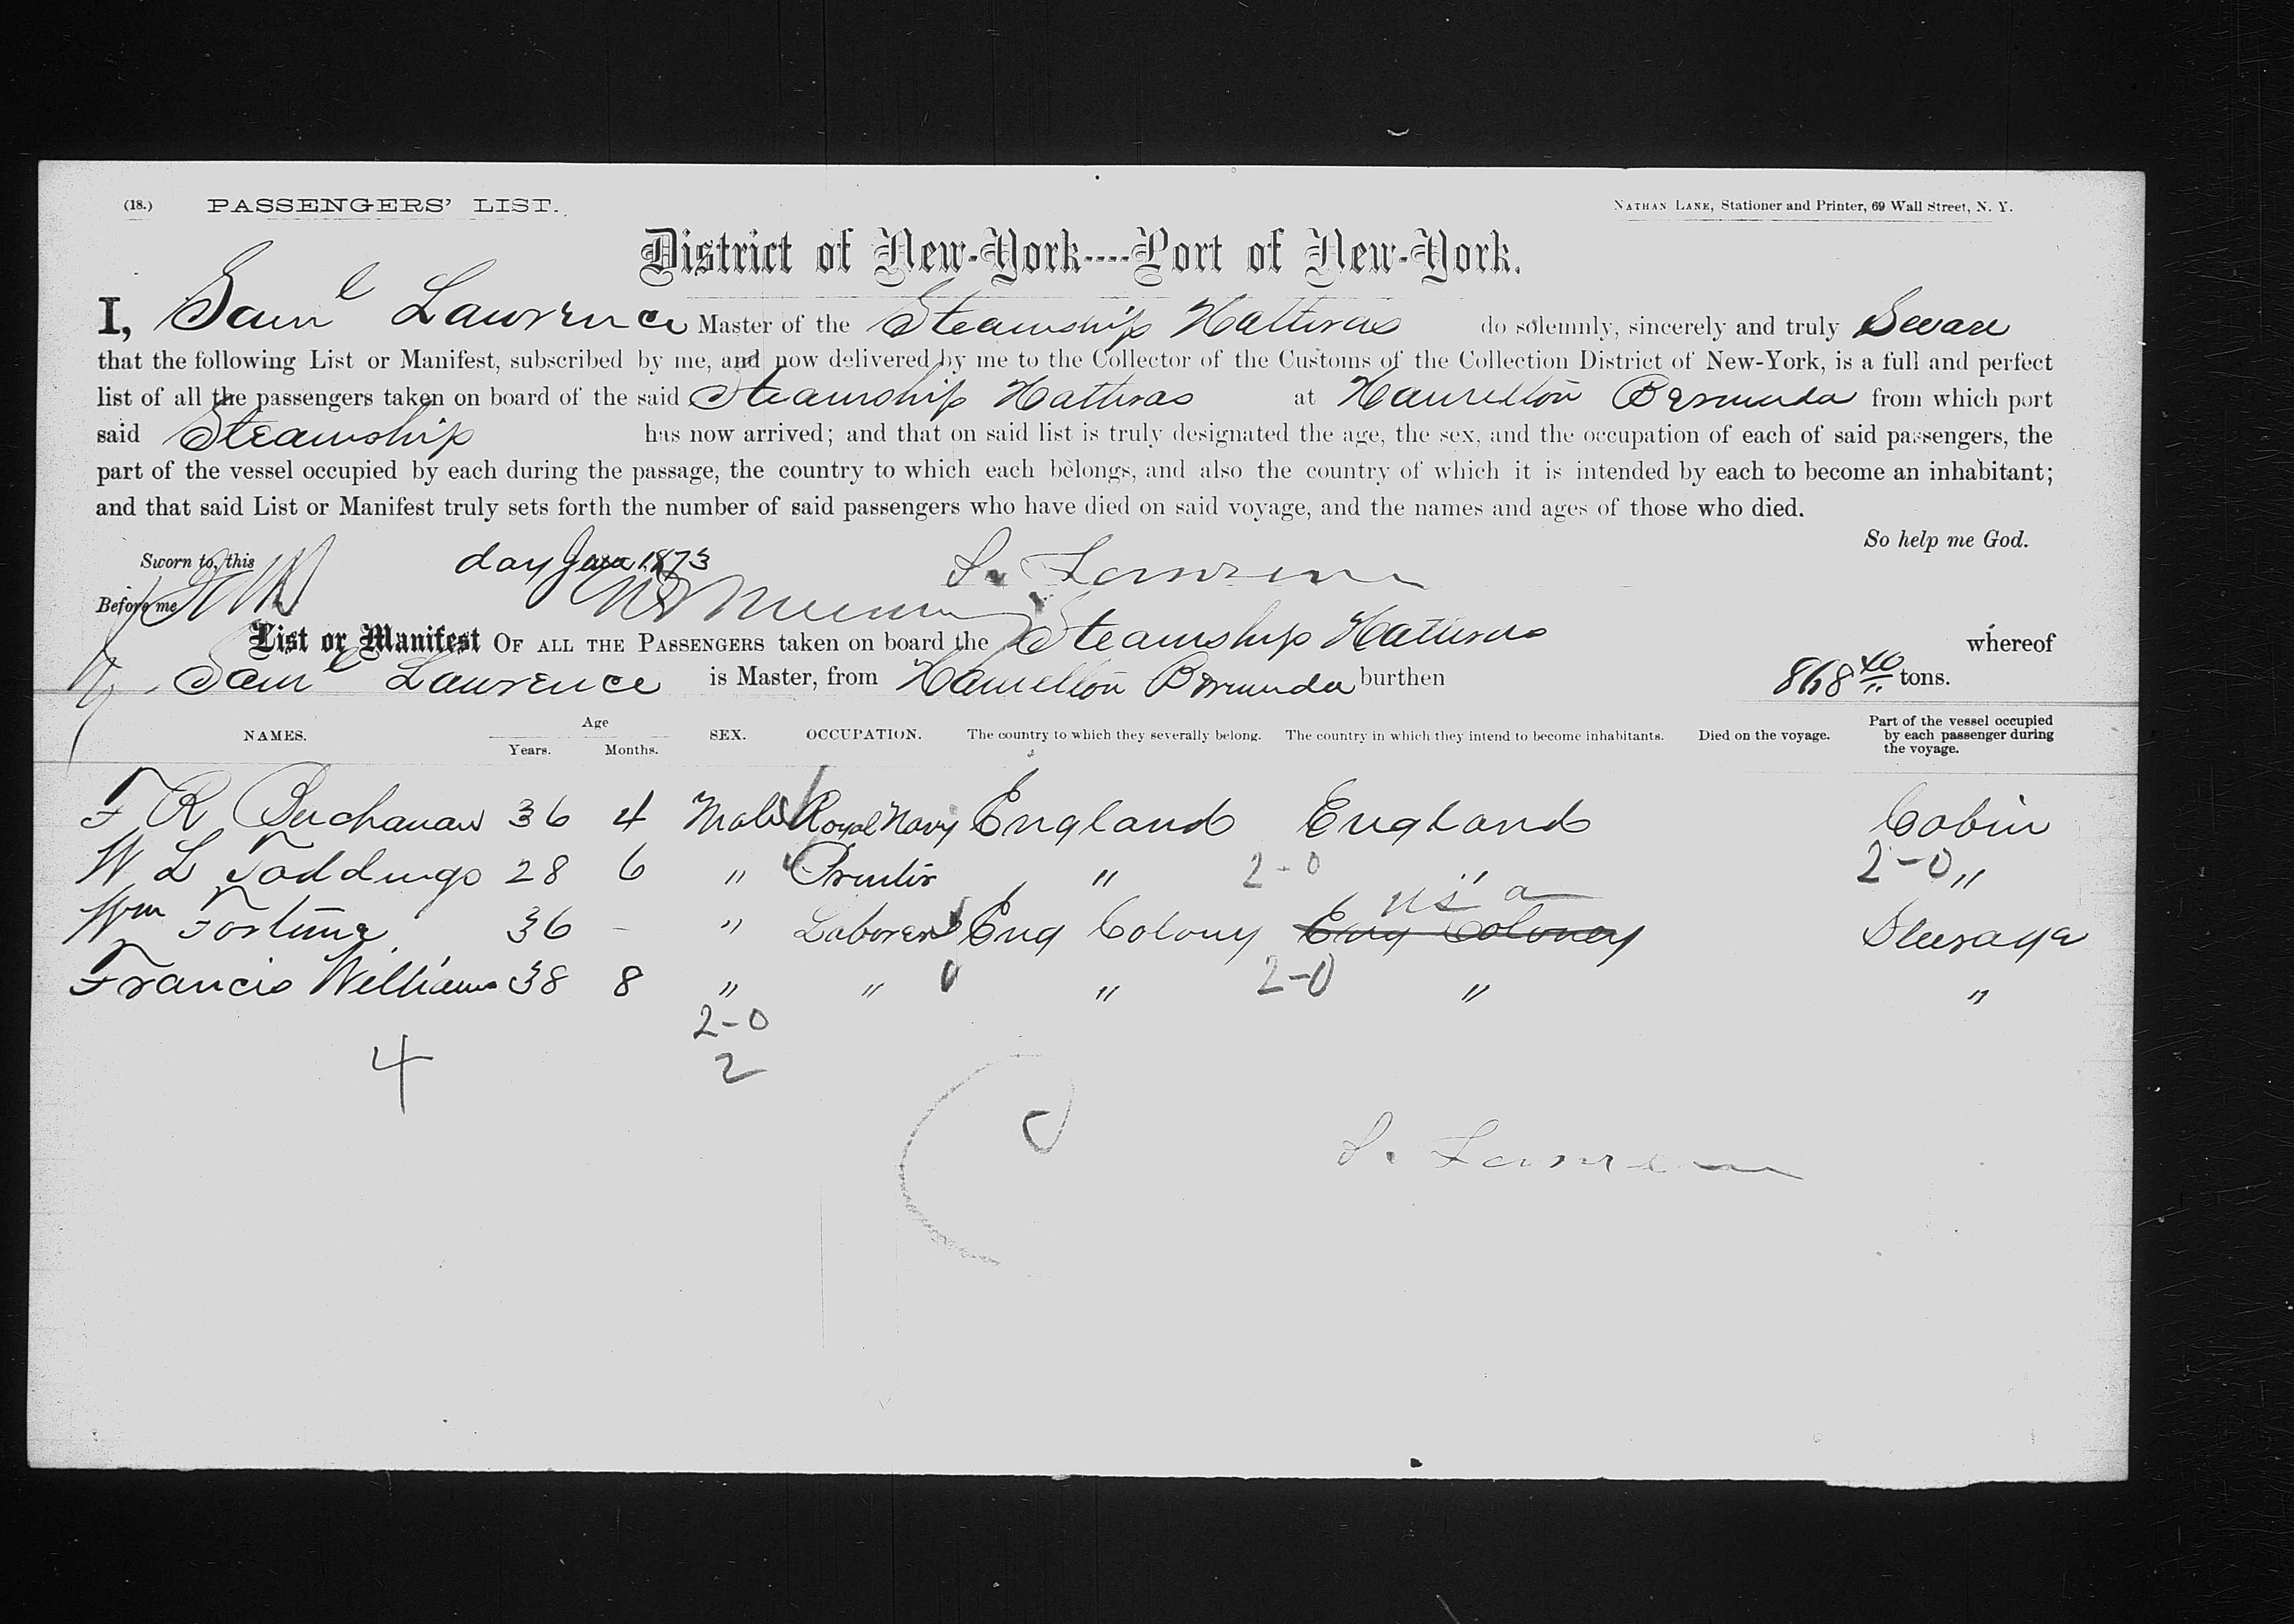 (18.) PASSENGERS' LIST. NATHAN LANE, Stationer and Printer, 69 Wall Street, N. Y.
District of New-York----Port of New-York.
I, Saml Lawrence Master of the Steamship Hatteras do solemnly, sincerely and truly Swear
that the following List or Manifest, subscribed by me, and now delivered by me to the Collector of the Customs of the Collection District of New-York, is a full and perfect
list of all the passengers taken on board of the said Steamship Hatteras at Hamilton Bermuda from which port
said Steamship has now arrived; and that on said list is truly designated the age, the sex, and the occupation of each of said passengers, the
part of the vessel occupied by each during the passage, the country to which each belongs, and also the country of which it is intended by each to become an inhabitant;
and that said List or Manifest truly sets forth the number of said passengers who have died on said voyage, and the names and ages of those who died.
So help me God.
Sworn to, this day 1873 S. Lawrence
Before me
List or Manifest OF ALL THE PASSENGERS taken on board the Steamship Hatteras whereof
Saml Lawrence is Master, from Hamilton Bermuda burthen 868 40 tons.
NAMES. Age Years. Months. SEX. OCCUPATION. The country to which they severally belong. The country in which they intend to become inhabitants. Died on the voyage. Part of the vessel occupied by each passenger during the voyage.
F R Buchanan 36 4 Male Royal Navy England England Cabin
W L 28 6 " " 2-0 " 2-0 "
U S a
Wm Fortune 36 - " Laborer Eng Colony Eng Coloney Steerage
Francis Williams 38 8 " " " 2-0 " "
2-0
4 2
S. Lawrence